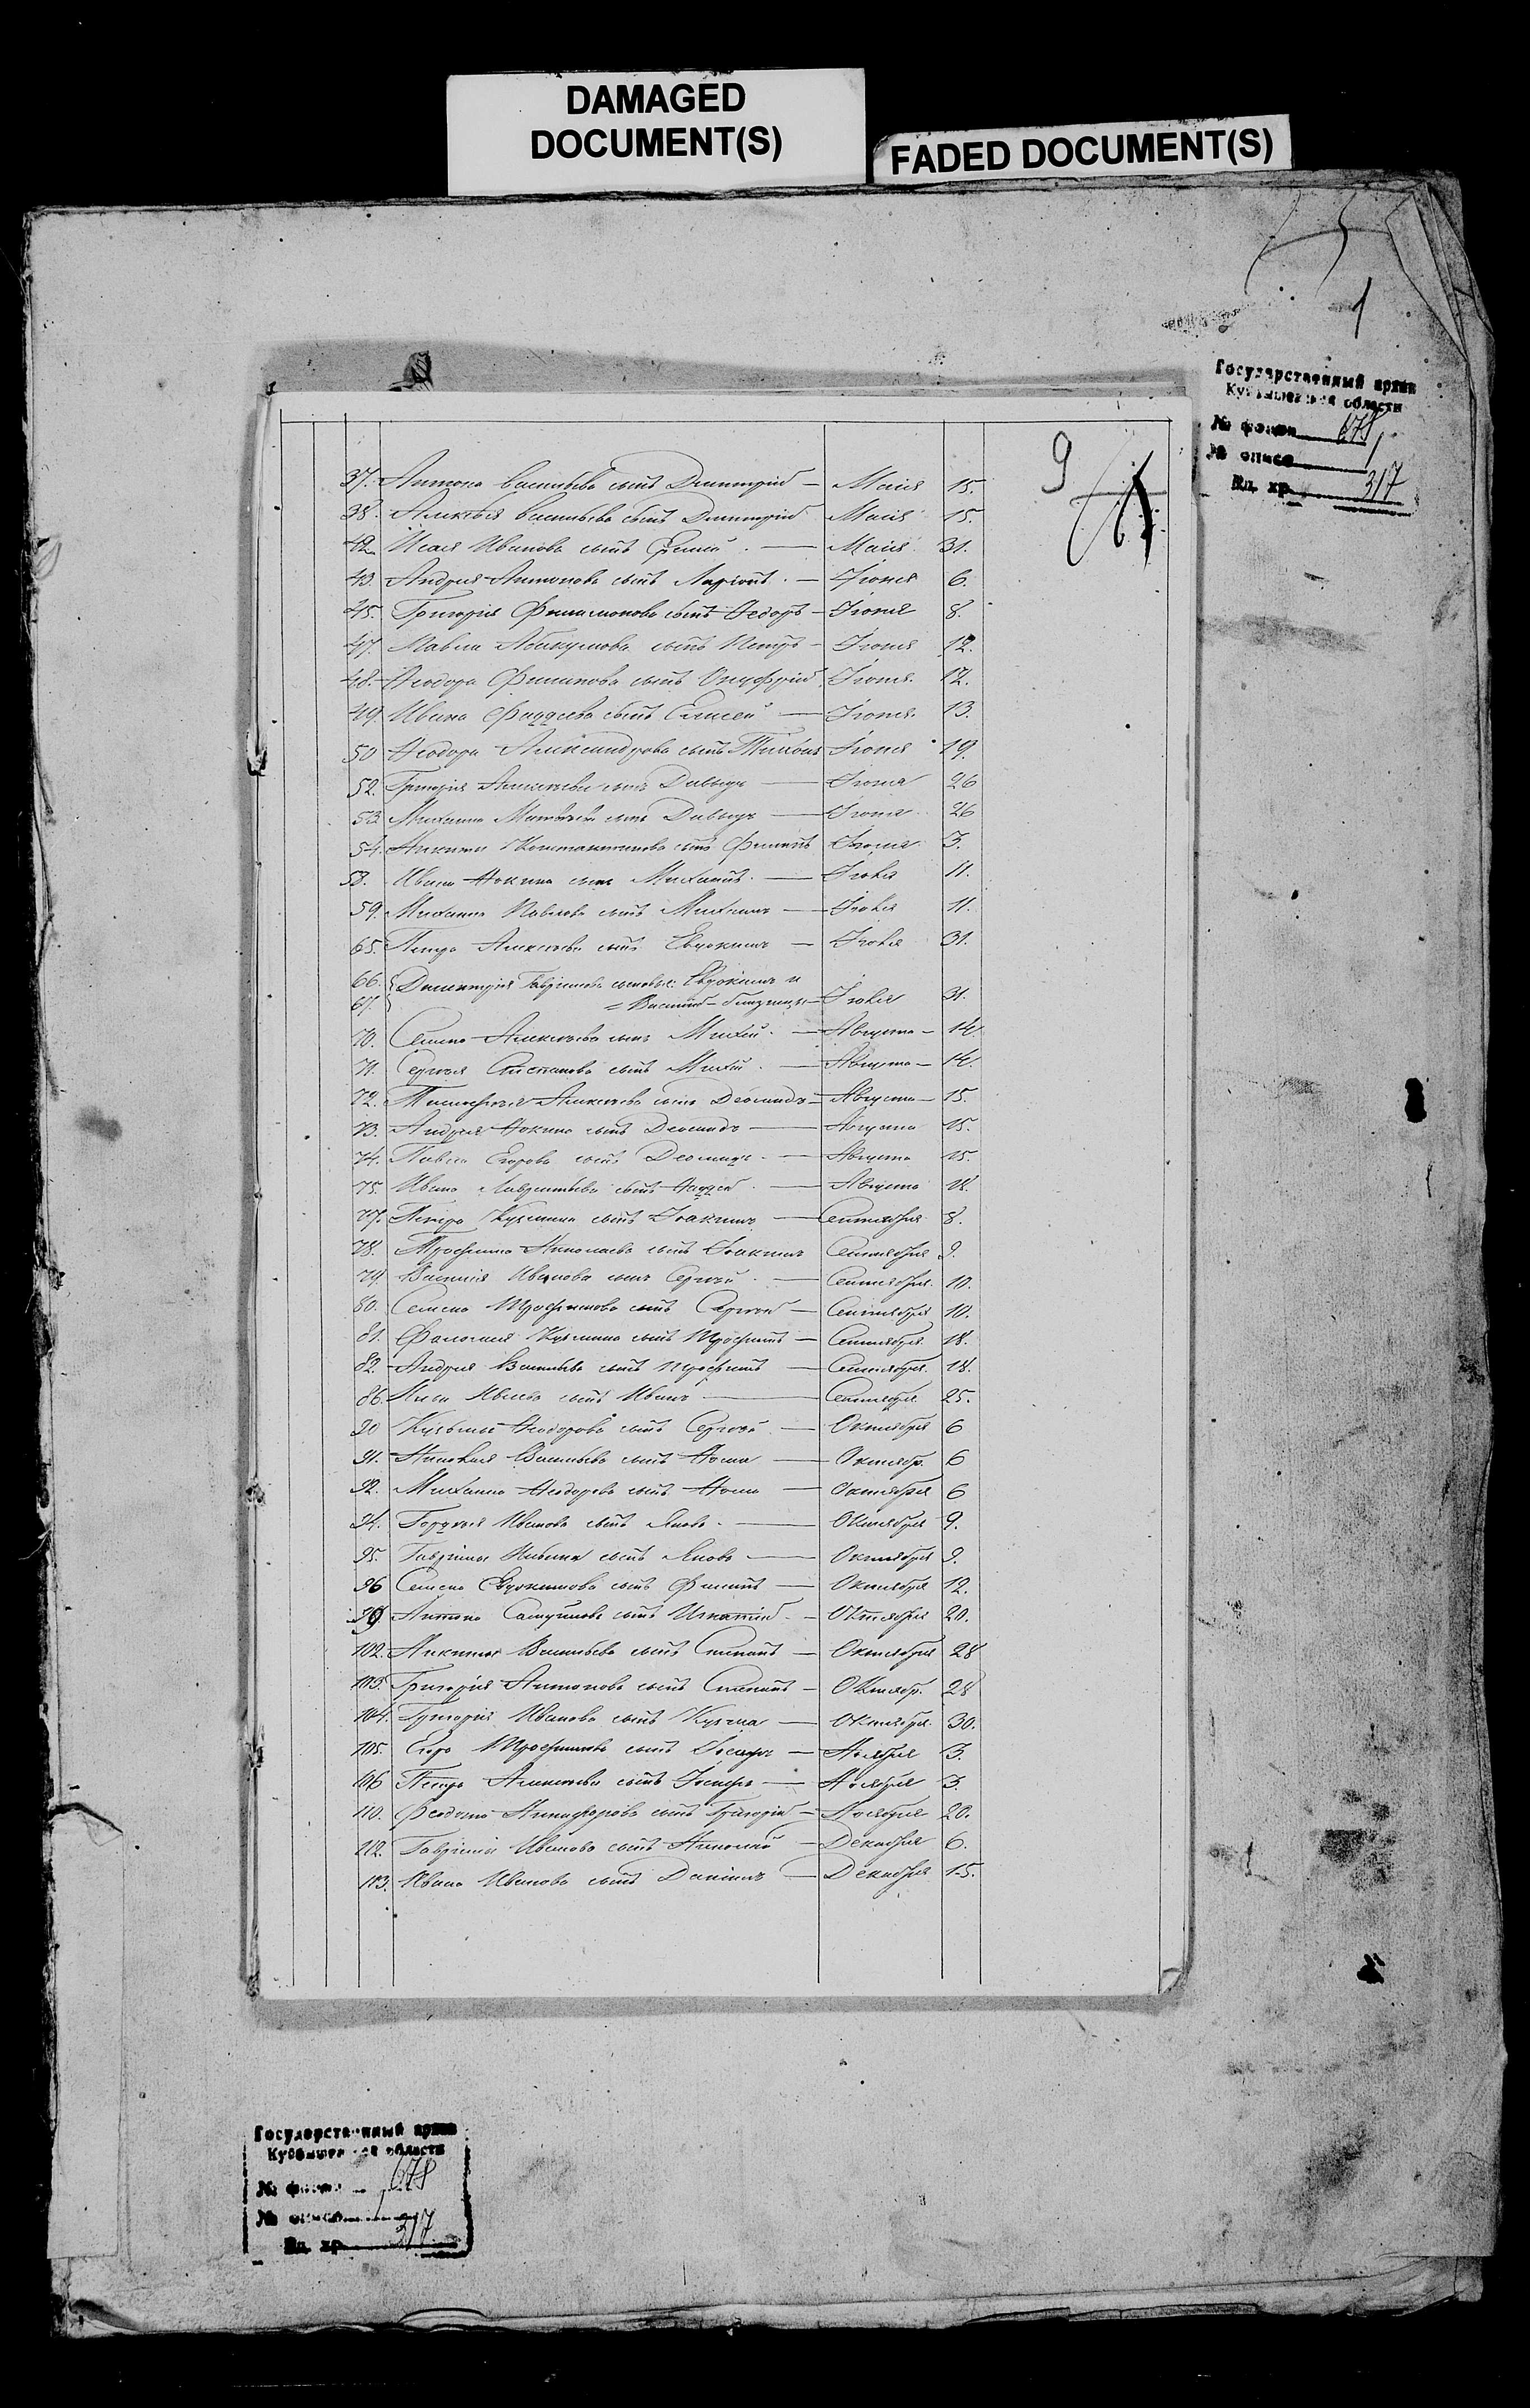 DAMAGED
DOCUMENT(S)
FADED DOCUMENT(S)
1
Государственный архив
Куйбышевской области
№ фонда 678
№ описи 1
Ед. хр. 317
9
37. Антона Васильева сынъ Димитрій — Маія 15.
38. Алексѣя Васильева сынъ Димитрій Маія 15.
42. Исаія Иванова сынъ — Маія 31.
43. Андрея Антонова сынъ Ларіонъ — Іюня 6.
45. Григорія Филимонова сынъ Ѳедоръ — Іюня 8.
47. Павла Абакумова сынъ Петръ — Іюня 12.
48. Ѳеодора Филипова сынъ Онуфрій Іюня 12.
49. Ивана Фаддеева сынъ Елисей — Іюня 13.
50 Ѳеодора Александрова сынъ Тихонъ Іюня 19.
52. Григорія Алексѣева сынъ Давыдъ — Іюня 26
53 Михаила Матвѣева сынъ Давыдъ — Іюня 26
54. Никиты Константинова сынъ Филипъ Іюля 3.
58. Ивана Ѳокина сынъ Михаилъ — Іюля 11.
59. Михаила Павлова сынъ Михаилъ — Іюля 11.
65. Петра Алексѣева сынъ Евдокимъ — Іюля 31.
66. Димитрія Гаврилова сыновья: Евдокимъ и
67. = Василій — близнецы — Іюля 31.
70. Семена Алексѣева сынъ Михей — Августа — 14.
71. Сергѣя Степанова сынъ Михей — Августа — 14.
72. Тимофея Алексѣева сынъ Деомидъ — Августа — 15.
73. Андрея Ѳокина сынъ Деомидъ — Августа 15.
74. Павла Егорова сынъ Деомидъ — Августа 15.
75. Ивана Лаврентьева сынъ Ѳаддей — Августа 18.
77. Петра Кузмина сынъ Іоакимъ — Сентября 8.
78. Трофима Николаева сынъ Іоакимъ Сентября 9.
79. Василія Иванова сынъ Сергѣй — Сентября 10.
80. Семена Трофимова сынъ Сергѣй — Сентября 10.
81. Кузмина сынъ Трофимъ — Сентября 18.
82. Андрея Васильева сынъ Трофимъ — Сентября 18.
86. сынъ Иванъ — Сентября 25.
90 Кузьмы Ѳеодорова сынъ Сергѣй — Октября 6
91. Васильева сынъ Ѳома — Октябр. 6
92. Михаила Ѳеодорова сынъ Ѳома — Октября 6
94. Гордѣя Иванова сынъ Яковъ — Октября 9.
95. Гаврилы сынъ Яковъ — Октября 9.
96 Семена Евдокимова сынъ Филипъ — Октября 12.
99. Антона Самуилова сынъ Игнатій — Октября 20.
102. Никиты Васильева сынъ Степанъ — Октября 28
103. Григорія Антонова сынъ Степанъ — Октябр. 28
104. Григорія Иванова сынъ Кузма — Октября 30.
105. Егора Трофимова сынъ Іосифъ — Ноября 3.
106 Петра Алексѣева сынъ Іосифъ — Ноября 3.
110. Федота Никифорова сынъ Григорій — Ноября 20.
112. Гаврилы Иванова сынъ Николай — Декабря 6.
113. Ивана Иванова сынъ Даніилъ — Декабря 15.
Государственный архив
Куйбышевской области
№ фонда 678
№ описи 1
Ед. хр. 317